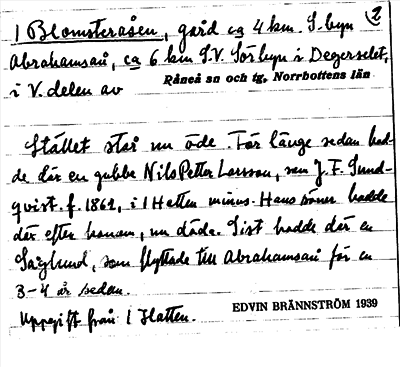 1 Blomsteråsen, gård ca 4 km. S. byn 2
Abrahamsån, ca 6 km S.V. Sörbyn i Degerselet,
i V. delen av Råneå sn och tg, Norrbottens län
Stället står nu öde. För länge sedan bod-
de där en gubbe Nils Petter Larsson, sen J. F. Sund-
qvist f. 1861, i 1 Hatten minns. Hans söner bodde
där efter honom, nu döda. Sist bodde där en
Säglund, som flyttade till Abrahamsån för en
3-4 år sedan.
Uppgift från 1 Hatten.
EDVIN BRÄNNSTRÖM 1939